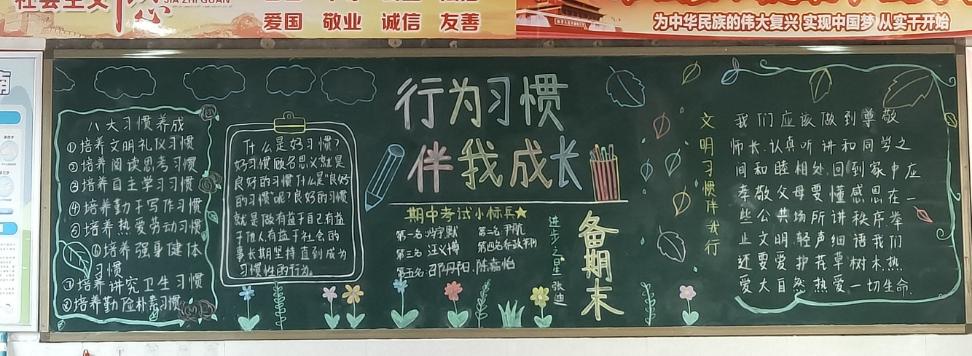 社会主义
JIA ZHI GUAN
爱国 敬业 诚信 友善
为中华民族的伟大复兴 实现中国梦 从实干开始
行为习惯
伴我成长
八大习惯养成
①培养文明礼仪习惯
②培养阅读思考习惯
③培养自主学习习惯
④培养勤于写作习惯
⑤培养热爱劳动习惯
⑥培养强身健体
习惯
⑦培养讲究卫生习惯
⑧培养勤俭朴素习惯
什么是好习惯?
好习惯顾名思义就是
良好的习惯什么是"良好
的习惯"呢?良好的习惯
就是做有益于自己有益
于他人有益于社会的
事长期坚持直到成为
习惯性的行为。
期中考试小标兵★
第一名
第二名
第三名 汪义博
第四名
第五名 邵丹阳、陈嘉怡
进步之星 张迪
备期末
文明习惯伴我行
我们应该做到尊敬
师长、认真听讲和同学之
间和睦相处.回到家中应
孝敬父母要懂感恩在一
些公共场所讲秩序举
止文明.轻声细语我们
还要爱护花草树木.热
爱大自然热爱一切生命.